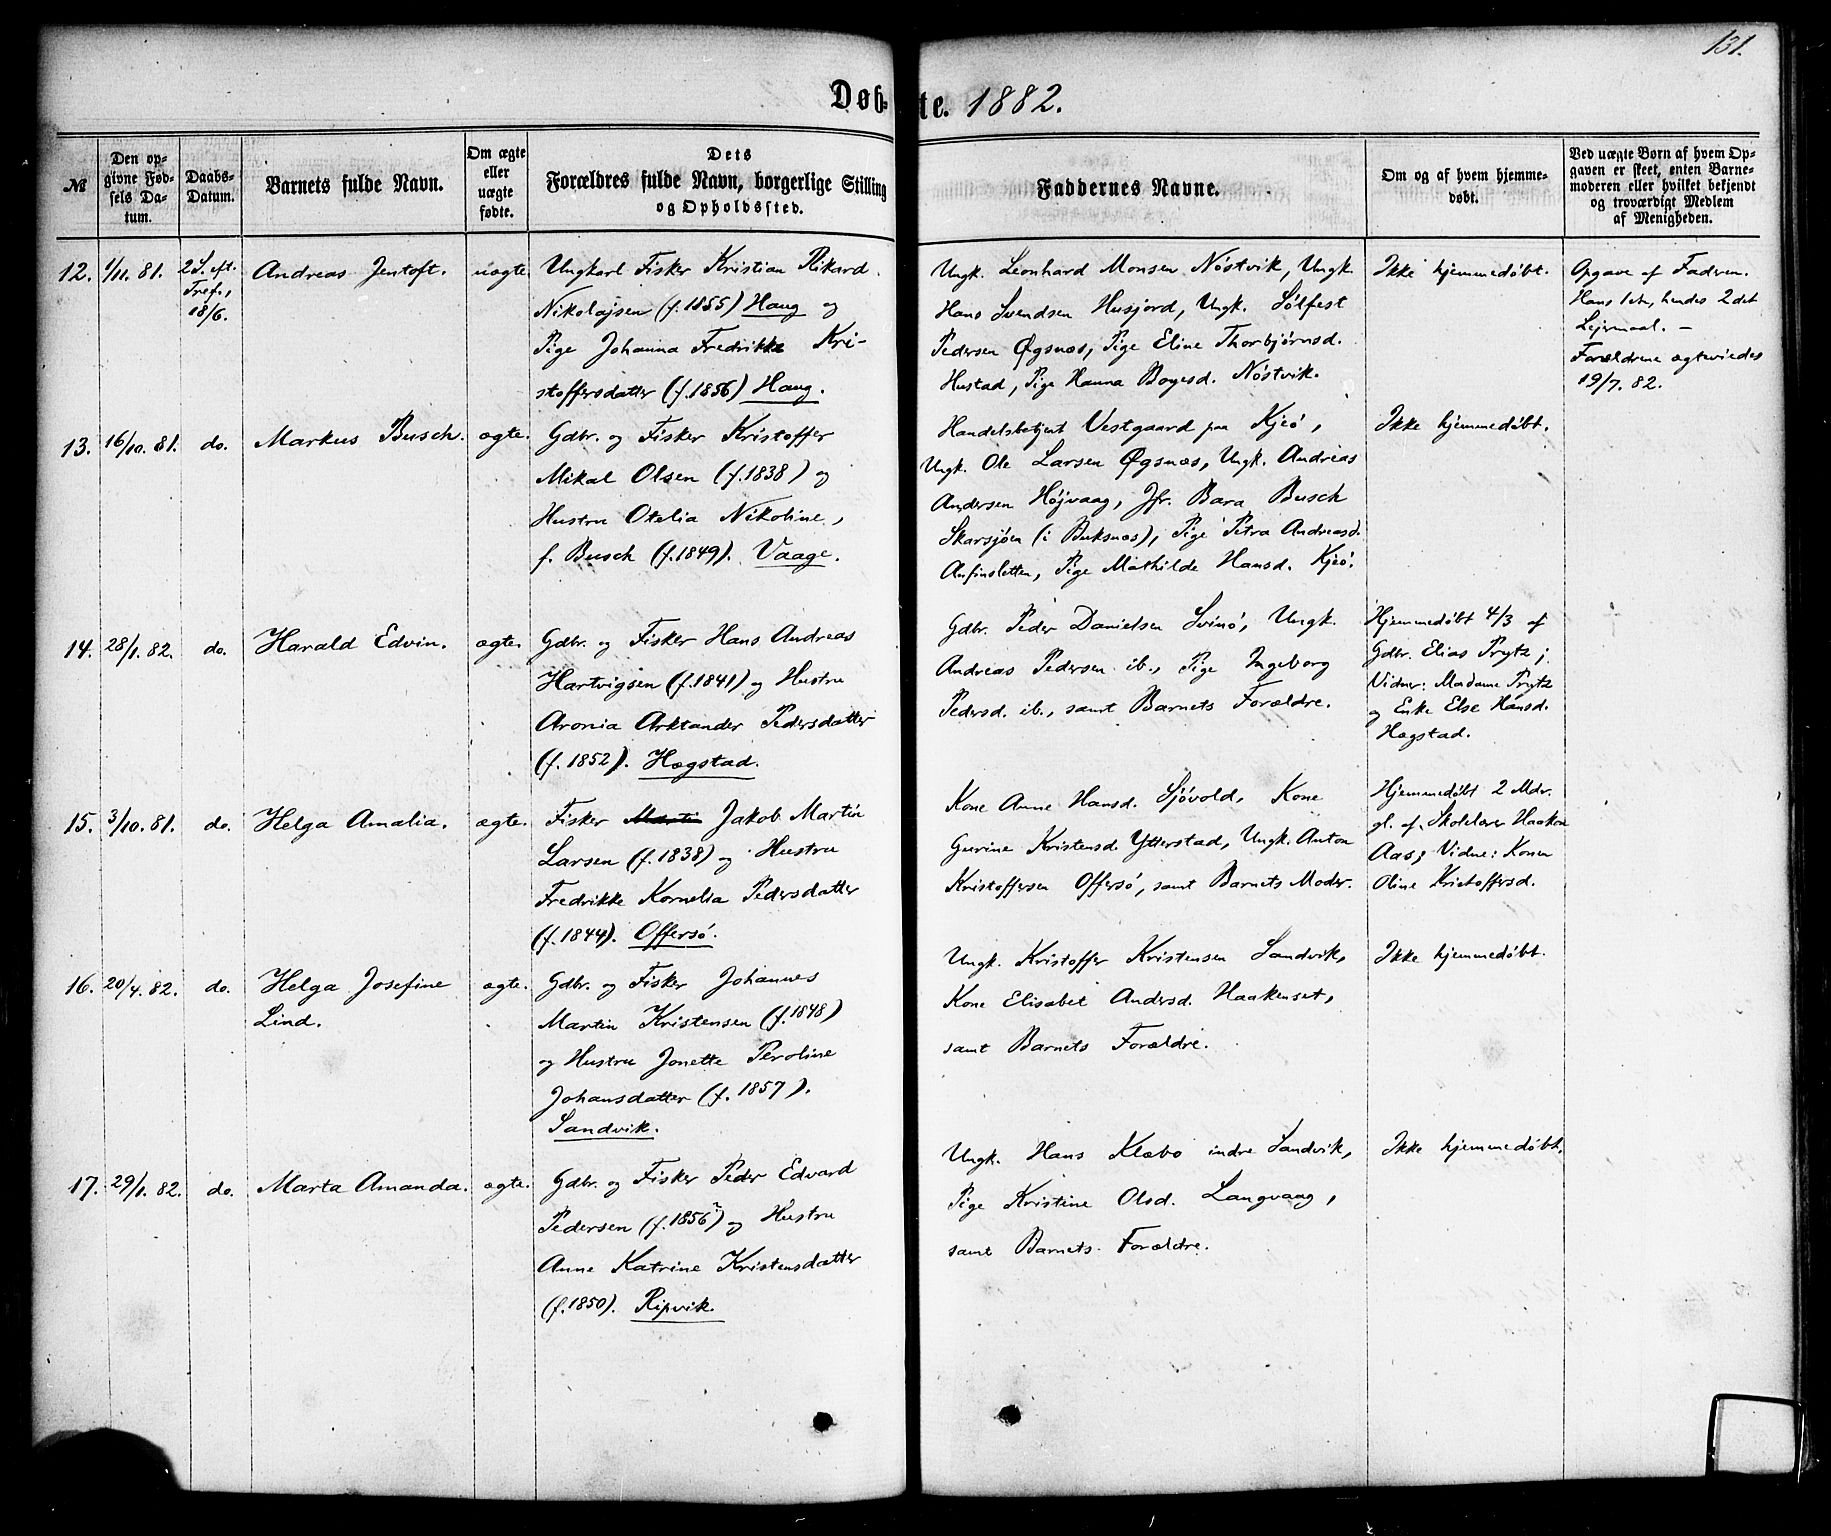 131.
Døb-te. 1882.
№
Den op-
givne Fød-
sels Da-
tum.
Daabs-
Datum.
Barnets fulde Navn.
Om ægte
eller
uægte
fødte.
Dets
Forældres fulde Navn, borgerlige Stilling
og Opholdssted.
Faddernes Navne.
Om og af hvem hjemme-
døbt.
Ved uægte Børn af hvem Op-
gaven er skeet, enten Barne-
moderen eller hvilket bekjendt
og troværdigt Medlem
af Menigheden.
12.
1/11. 81.
2 S. eft.
Tref.,
18/6.
Andreas Jentoft.
uægte.
Ungkarl Fisker Kristian Rikard
Nikolajsen (f. 1855) Haug og
Pige Johanna Fredrikke Kri-
stoffersdatter (f. 1856) Haug.
Ungk. Leonhard Monsen Nöstvik, Ungk.
Hans Svendsen Husjord, Ungk. Sölfest
Pedersen Øgsnæs, Pige Eline Thorbjörnsd.
Hustad, Pige Hanna Boyesd. Nöstvik.
Ikke hjemmedøbt.
Opgave af Fadren.
Hans 1ste, hendes 2det
Lejermaal. –
Forældrene ægteviedes
19/7. 82.
13.
16/10. 81.
do.
Markus Busch.
ægte.
Gdbr. og Fisker Kristoffer
Mikal Olsen (f. 1838) og
Hustru Otelia Nikoline,
f. Busch (f. 1849). Vaage.
Handelsbetjent Vestgaard paa Kjeö,
Ungk. Ole Larsen Øgsnæs, Ungk. Andreas
Andersen Höjvaag, Jfr. Bara Busch
Skarsjöen (i Buksnæs), Pige Petra Andreasd.
Anfinsletten, Pige Mathilde Hansd. Kjeö.
Ikke hjemmedøbt.
14.
28/1. 82.
do.
Harald Edvin.
ægte.
Gdbr. og Fisker Hans Andreas
Hartvigsen (f. 1841) og Hustru
Aronia Arktander Pedersdatter
(f. 1852). Hægstad.
Gdbr. Peder Danielsen Svinö, Ungk.
Andreas Pedersen ib., Pige Ingeborg
Pedersd. ib., samt Barnets Forældre.
Hjemmedøbt 4/3 af
Gdbr. Elias Prytz;
Vidner: Madame Prytz
og Enke Else Hansd.
Hægstad.
15.
3/10. 81.
do.
Helga Amalia.
ægte.
Fisker Martin Jakob Martin
Larsen (f. 1838) og Hustru
Fredrikke Kornelia Pedersdatter
(f. 1844). Offersö.
Kone Anne Hansd. Sjövold, Kone
Gurine Kristensd. Ytterstad, Ungk. Anton
Kristoffersen Offersö, samt Barnets Moder.
Hjemmedøbt 2 Mdr.
gl. af Skolelærer Haakon
Aas; Vidne: Konen
Oline Kristoffersd.
16.
20/4. 82.
do.
Helga Josefine
Lind.
ægte.
Gdbr. og Fisker Johannes
Martin Kristensen (f. 1848)
og Hustru Jonette Peroline
Johansdatter (f. 1857).
Sandvik.
Ungk. Kristoffer Kristensen Sandvik,
Kone Elisabet Andersd. Haakenset,
samt Barnets Forældre.
Ikke hjemmedøbt.
17.
29/1. 82.
do.
Marta Amanda.
ægte.
Gdbr. og Fisker Peder Edvard
Pedersen (f. 1856?) og Hustru
Anne Katrine Kristensdatter
(f. 1850). Ripvik.
Ungk. Hans Klæbo indre Sandvik,
Pige Kristine Olsd. Langvaag,
samt Barnets Forældre.
Ikke hjemmedøbt.